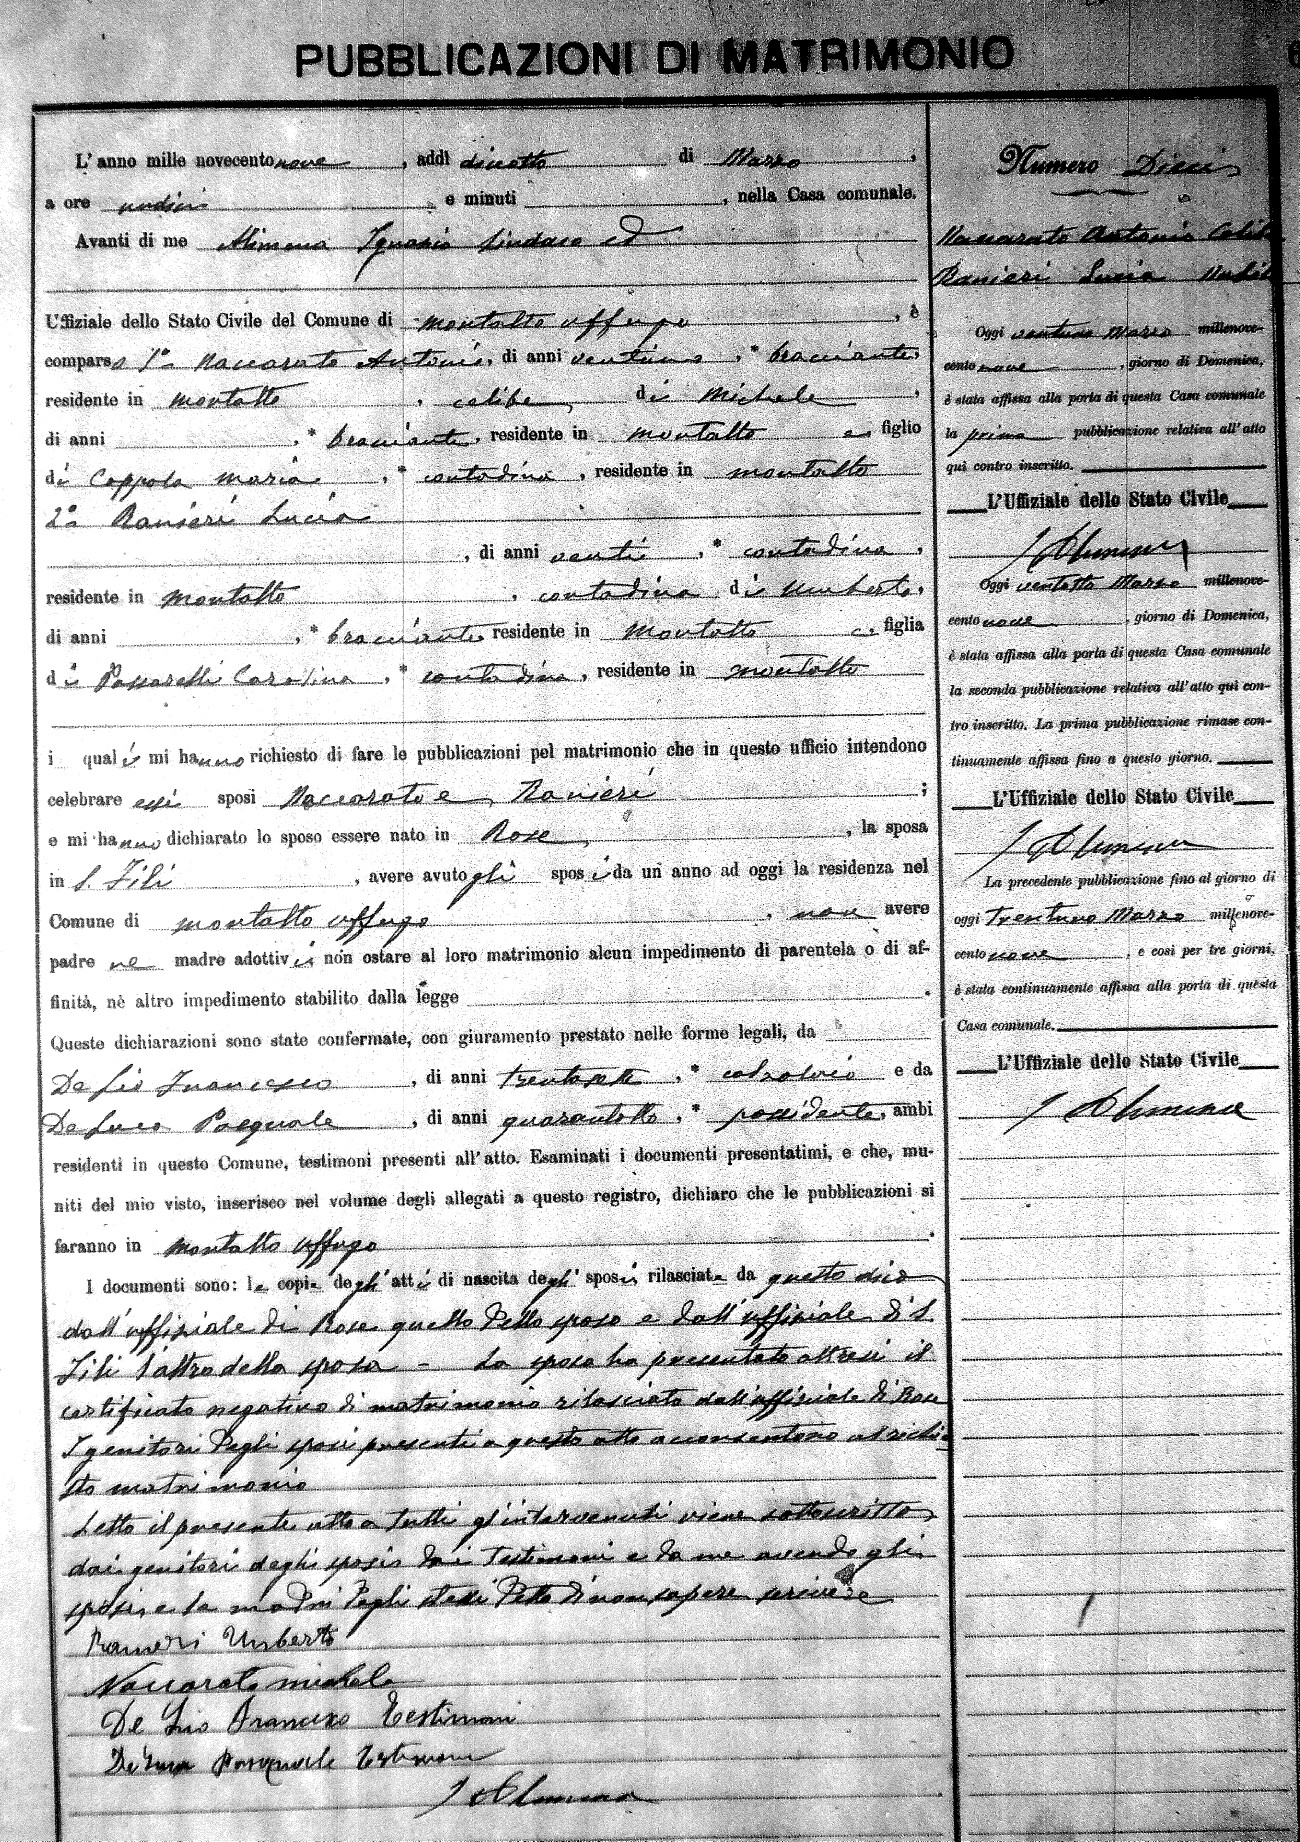 PUBBLICAZIONI DI MATRIMONIO
6
L'anno mille novecentonove, addì diciotto di Marzo,
a ore undici e minuti , nella Casa comunale.
Avanti di me Alimena Ignazio Sindaco ed
Uffiziale dello Stato Civile del Comune di Montalto Uffugo, è
compars 1° Naccarato Antonio, di anni ventuno, * bracciante,
residente in Montalto, celibe, di Michele,
di anni , * bracciante, residente in Montalto e, figlio
di Coppola Maria, * contadina, residente in Montalto
2° Ranieri Lucia
, di anni venti, * contadina,
residente in Montalto, contadina di Umberto,
di anni , * bracciante residente in Montalto e, figlia
di Passarelli Carolina, * contadina, residente in Montalto
i quali mi hanno richiesto di fare le pubblicazioni pel matrimonio che in questo ufficio intendono
celebrare essi sposi Naccarato e Ranieri ;
e mi hanno dichiarato lo sposo essere nato in Rose, la sposa
in S. Fili, avere avuto gli sposi da un anno ad oggi la residenza nel
Comune di Montalto Uffugo, non avere
padre ne madre adottivi non ostare al loro matrimonio alcun impedimento di parentela o di af-
finità, nè altro impedimento stabilito dalla legge .
Queste dichiarazioni sono state confermate, con giuramento prestato nelle forme legali, da
De Lio Francesco, di anni trentasette, * calzolaio e da
De Luca Pasquale, di anni quarantotto, * possidente, ambi
residenti in questo Comune, testimoni presenti all'atto. Esaminati i documenti presentatimi, e che, mu-
niti del mio visto, inserisco nel volume degli allegati a questo registro, dichiaro che le pubblicazioni si
faranno in Montalto Uffugo.
I documenti sono: le copie degli atti di nascita degli sposi rilasciate da questo
dall'uffiziale di Rose quello dello sposo e dall'uffiziale di S.
Fili l'altro della sposa - Lo sposo ha presentato altresì il
certificato negativo di matrimonio rilasciato dall'uffiziale di Rose
I genitori degli sposi presenti a questo atto acconsentono al richie
sto matrimonio
Letto il presente atto a tutti gl'intervenuti viene sottoscritto
dai genitori degli sposi dai testimoni e da me avendo gli
sposi e le madri degli stessi detto di non sapere scrivere
Ranieri Umberto
Naccarato Michele
De Lio Francesco Testimoni
De Luca Pasquale Testimone
I Alimena
Numero Dieci
Naccarato Antonio Celibe
Ranieri Lucia Nubile
Oggi ventuno Marzo millenove-
cento nove, giorno di Domenica,
è stata affissa alla porta di questa Casa comunale
la prima pubblicazione relativa all'atto
qui contro inscritto.
L'Uffiziale dello Stato Civile
I Alimena
Oggi ventotto Marzo millenove-
cento nove, giorno di Domenica,
è stata affissa alla porta di questa Casa comunale
la seconda pubblicazione relativa all'atto qui con-
tro inscritto. La prima pubblicazione rimase con-
tinuamente affissa fino a questo giorno.
L'Uffiziale dello Stato Civile
I Alimena
La precedente pubblicazione fino al giorno di
oggi trentuno Marzo millenove-
cento nove, e così per tre giorni,
è stata continuamente affissa alla porta di questa
Casa comunale.
L'Uffiziale dello Stato Civile
I Alimena